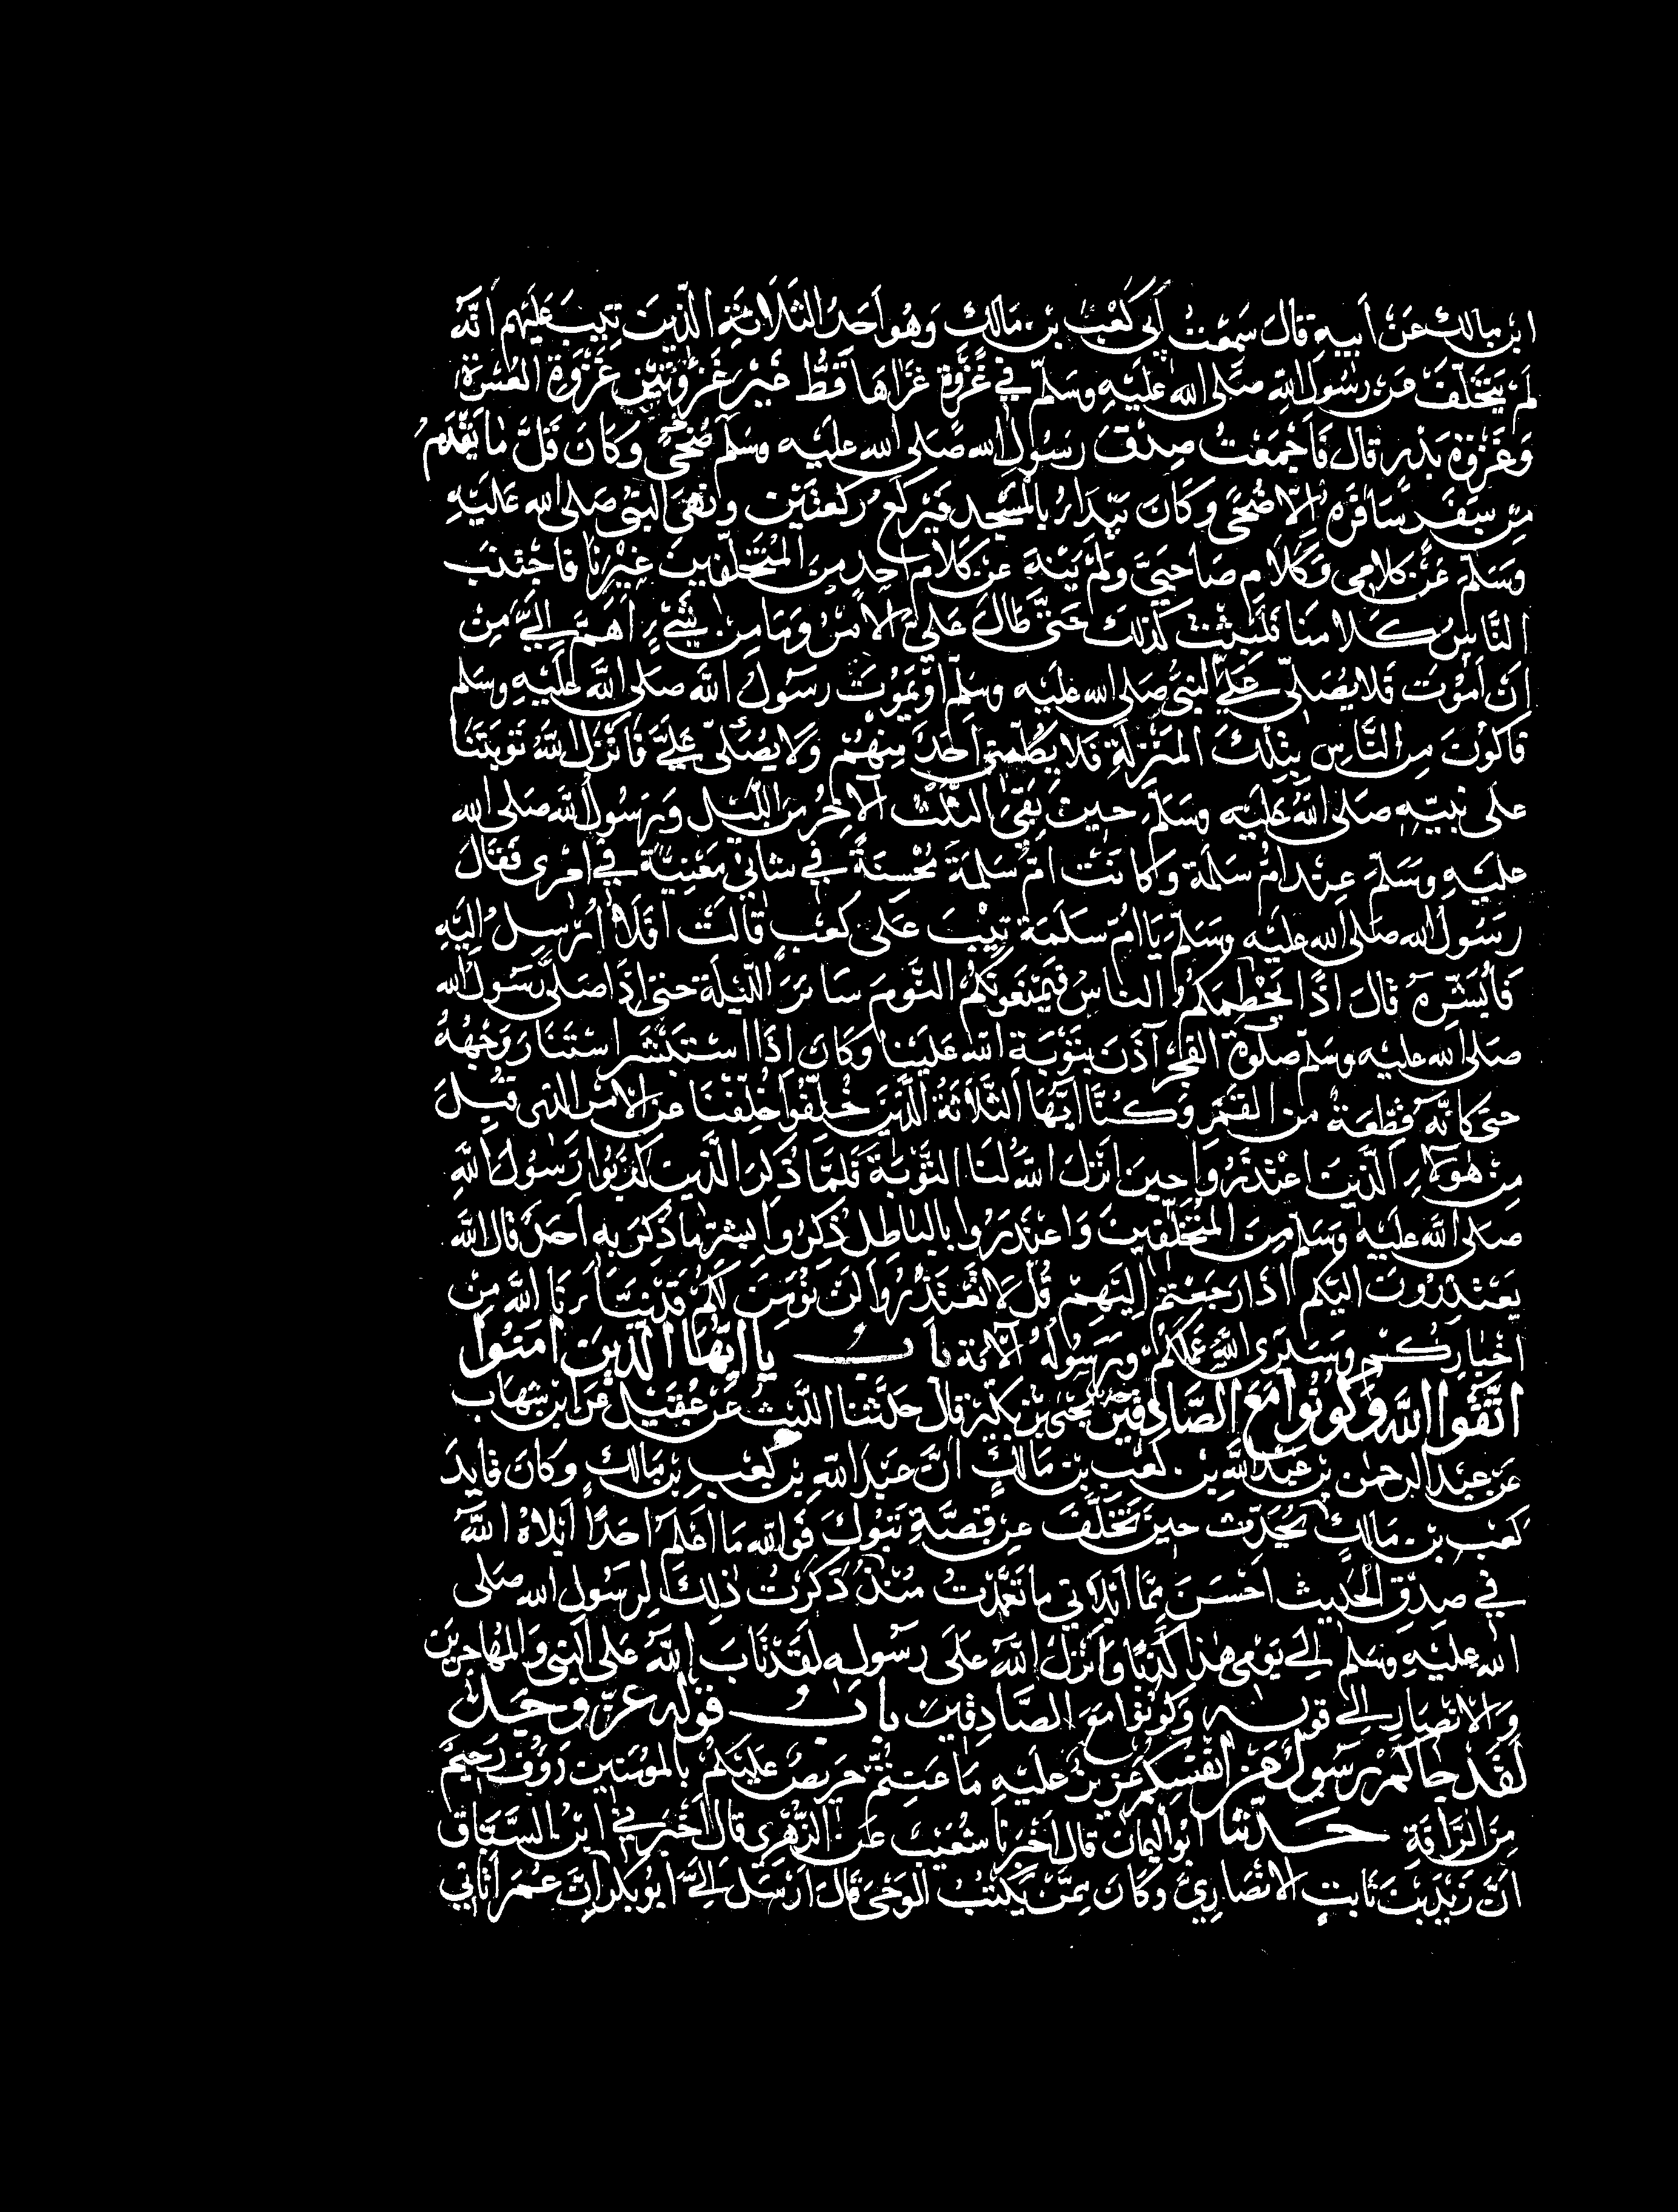 ابن مالك عن أبيه قال سمعت أبي كعب بن مالك وهو أحد الثلاثة الذين تيب عليهم أنه
لم يتخلف عن رسول الله صلى الله عليه وسلم في غزوة غزاها قط غير غزوتين غزوة العسرة
وغزوة بدر قال فأجمعت صدق رسول الله صلى الله عليه وسلم ضحى وكان قل ما يقدم
من سفر سافره إلا ضحى وكان يبدأ بالمسجد فيركع ركعتين ونهى النبي صلى الله عليه
وسلم عن كلامي وكلام صاحبي ولم ينه عن كلام أحد من المتخلفين غيرنا فاجتنب
الناس كلامنا فلبثت كذلك حتى طال علي الأمر وما من شيء أهم إلي من
أن أموت فلا يصلي علي النبي صلى الله عليه وسلم أو يموت رسول الله صلى الله عليه وسلم
فأكون من الناس بتلك المنزلة فلا يكلمني أحد منهم ولا يصلى علي فأنزل الله توبتنا
على نبيه صلى الله عليه وسلم حين بقي الثلث الآخر من الليل ورسول الله صلى الله
عليه وسلم عند أم سلمة وكانت أم سلمة محسنة في شأني معنية في أمري فقال
رسول الله صلى الله عليه وسلم يا أم سلمة تيب على كعب قالت أفلا أرسل إليه
فأبشره قال إذا يحطمكم الناس فيمنعونكم النوم سائر الليلة حتى إذا صلى رسول الله
صلى الله عليه وسلم صلوة الفجر آذن بتوبة الله علينا وكان إذا استبشر استنار وجهه
حتى كأنه قطعة من القمر وكنا أيها الثلاثة الذين خلفوا خلفنا عن الأمر الذي قبل
من هؤلاء الذين اعتذروا حين أنزل الله لنا التوبة فلما ذكر الذين كذبوا رسول الله
صلى الله عليه وسلم من المتخلفين واعتذروا بالباطل ذكروا بشر ما ذكر به أحد قال الله
يعتذرون إليكم إذا رجعتم إليهم قل لا تعتذروا لن نؤمن لكم قد نبأنا الله من
أخباركم وسيرى الله عملكم ورسوله الآية باب يا أيها الذين آمنوا
اتقوا الله وكونوا مع الصادقين يحيى بن بكير قال حدثنا الليث عن عقيل عن ابن شهاب
عن عبد الرحمن بن عبد الله بن كعب بن مالك أن عبد الله بن كعب بن مالك وكان قايد
كعب بن مالك يحدث حين تخلف عن قصة تبوك فوالله ما أعلم أحدا أبلاه الله
في صدق الحديث أحسن مما أبلاني ما تعمدت منذ ذكرت ذلك لرسول الله صلى
الله عليه وسلم إلى يومي هذا كذبا وأنزل الله على رسوله لقد تاب الله على النبي والمهاجرين
والأنصار إلى قوله وكونوا مع الصادقين باب قوله عز وجل
لقد جاكم رسول من أنفسكم عزيز عليه ما عنتم حريص عليكم بالمؤمنين رؤف رحيم
من الرأفة حدثنا أبو اليمان قال أخبرنا شعيب عن الزهري قال أخبرني ابن السباق
أن زيد بن ثابت الأنصاري وكان ممن يكتب الوحي قال أرسل إلي أبو بكر إن عمر أتاني